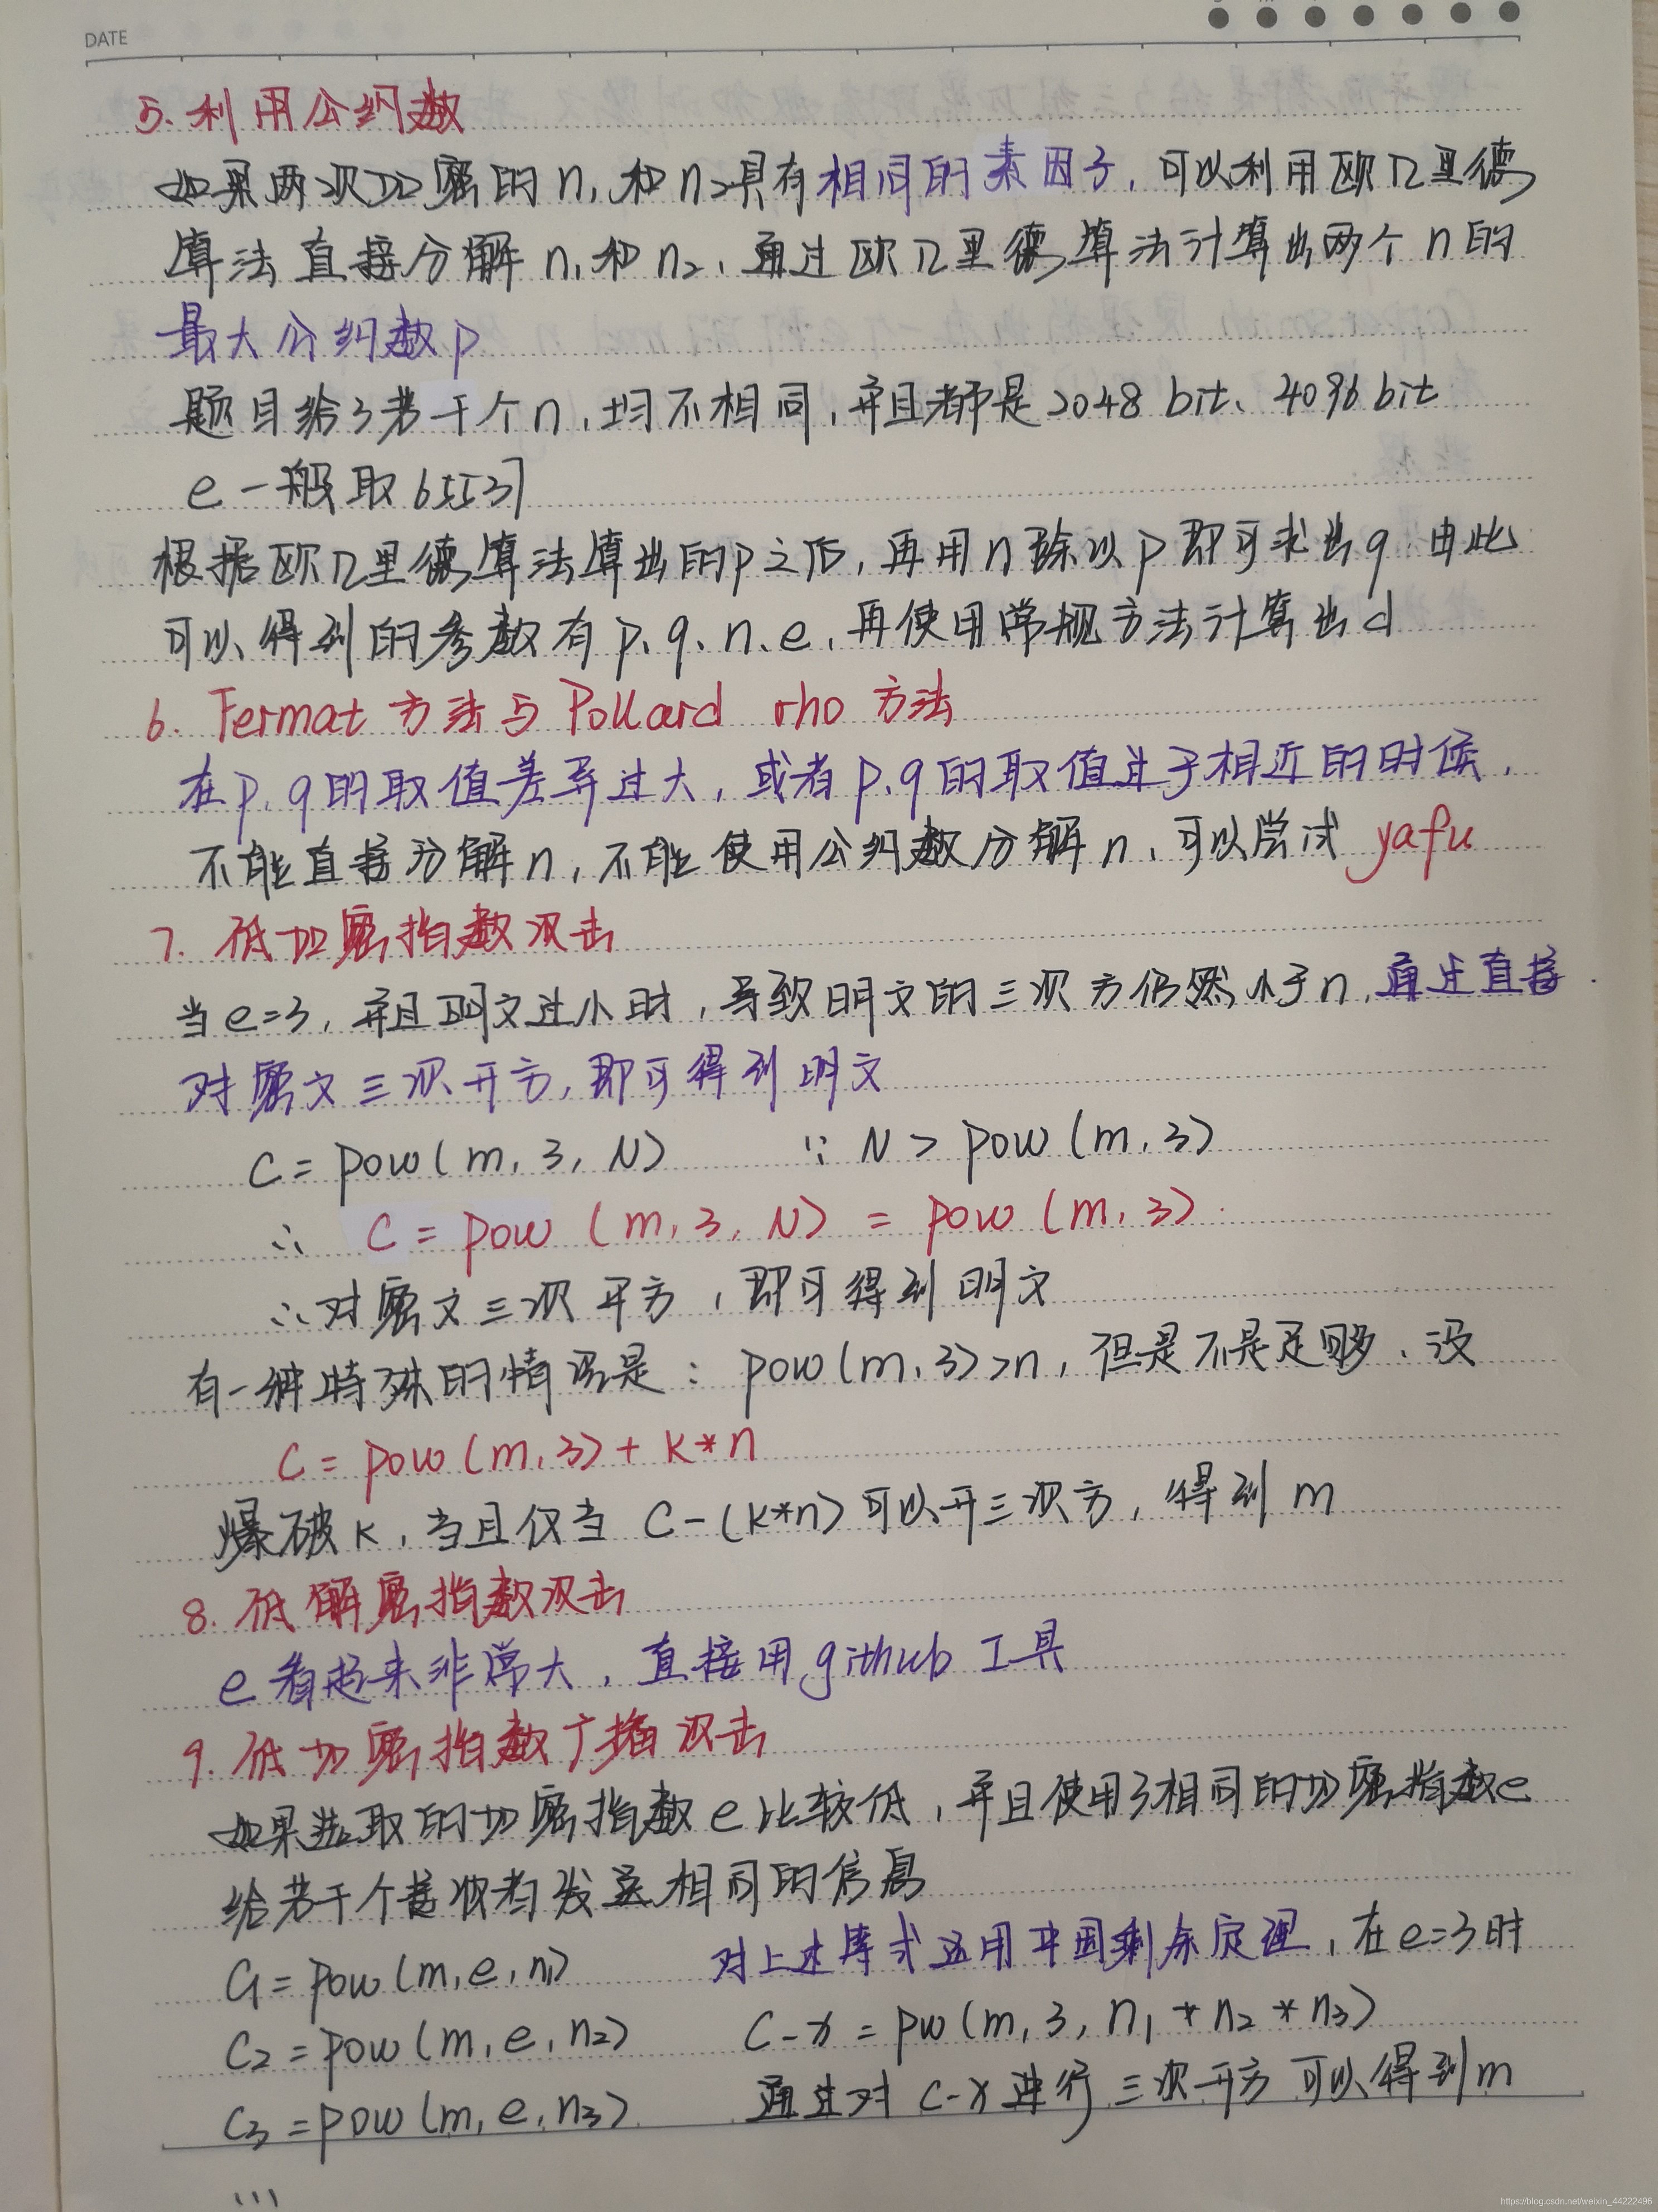 DATE
5. 利用公约数
如果两次加密的n₁和n₂具有相同的素因子,可以利用欧几里德
算法直接分解n₁和n₂,通过欧几里德算法计算出两个n的
最大公约数p
题目给了若干个n,均不相同,并且都是2048bit、4096bit
e一般取65537
根据欧几里德算法算出的p之后,再用n除以p即可求出q,由此
可以得到的参数有p、q、n、e,再使用常规方法计算出d
6. Fermat方法与Pollard rho方法
在p、q的取值差异过大,或者p、q的取值过于相近的时候,
不能直接分解n,不能使用公约数分解n,可以尝试yafu
7. 低加密指数攻击
当e=3,并且明文过小时,导致明文的三次方仍然小于n,通过直接
对密文三次开方,即可得到明文
C=pow(m,3,N) ∵ N>pow(m,3)
∴ C=pow(m,3,N)=pow(m,3)
∴对密文三次开方,即可得到明文
有一种特殊的情况是:pow(m,3)>n,但是不是足够,设
C=pow(m,3)+k*n
爆破k,当且仅当C-(k*n)可以开三次方,得到m
8. 低解密指数攻击
e看起来非常大,直接用github工具
9. 低加密指数广播攻击
如果选取的加密指数e比较低,并且使用了相同的加密指数e
给若干个接收者发送相同的信息
C₁=pow(m,e,n₁) 对上述等式运用中国剩余定理,在e=3时
C₂=pow(m,e,n₂) C-x=pw(m,3,n₁*n₂*n₃)
C₃=pow(m,e,n₃) 通过对C-x进行三次开方可以得到m
...
https://blog.csdn.net/weixin_44222496